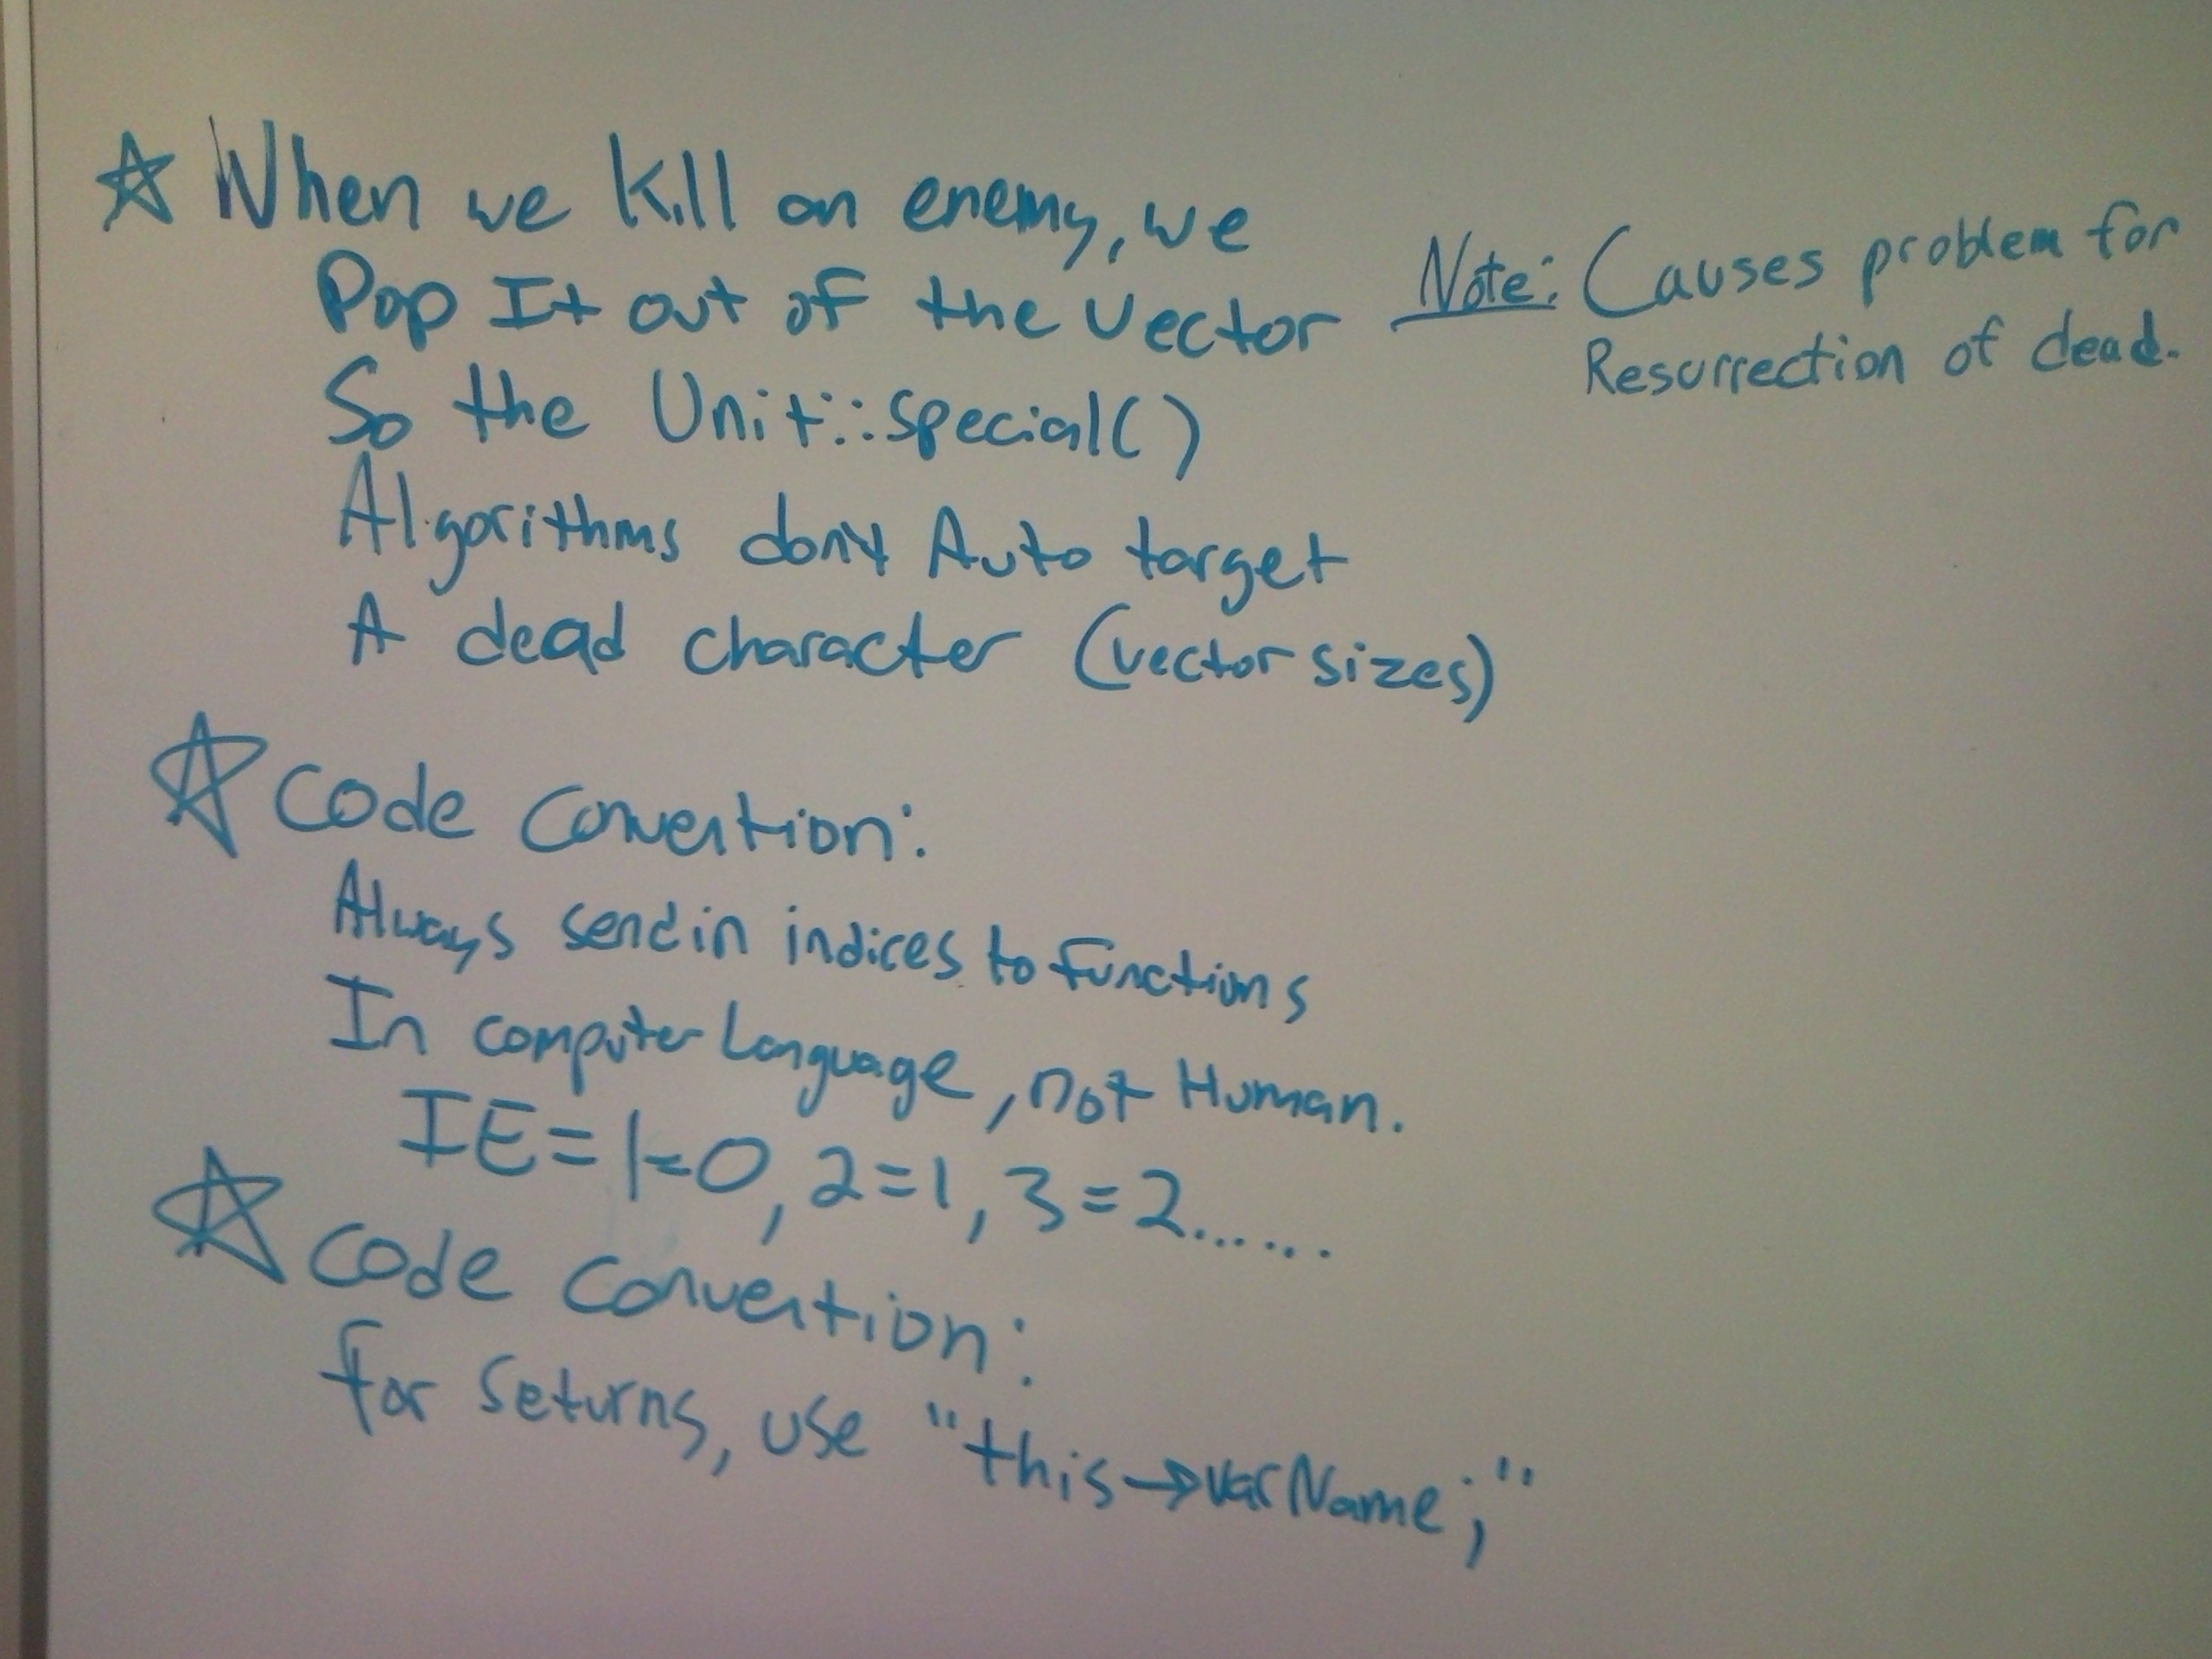 ☆ When we Kill an enemy, we
Pop It out of the Vector
So the Unit::special()
Algorithms don't Auto target
A dead character (vector sizes)
Note: Causes problem for
Resurrection of dead.
☆ Code Convention:
Always send in indices to functions
In computer Language, not Human.
IE = 1=0, 2=1, 3=2......
☆ Code Convention:
for Seturns, use "this→varName;"